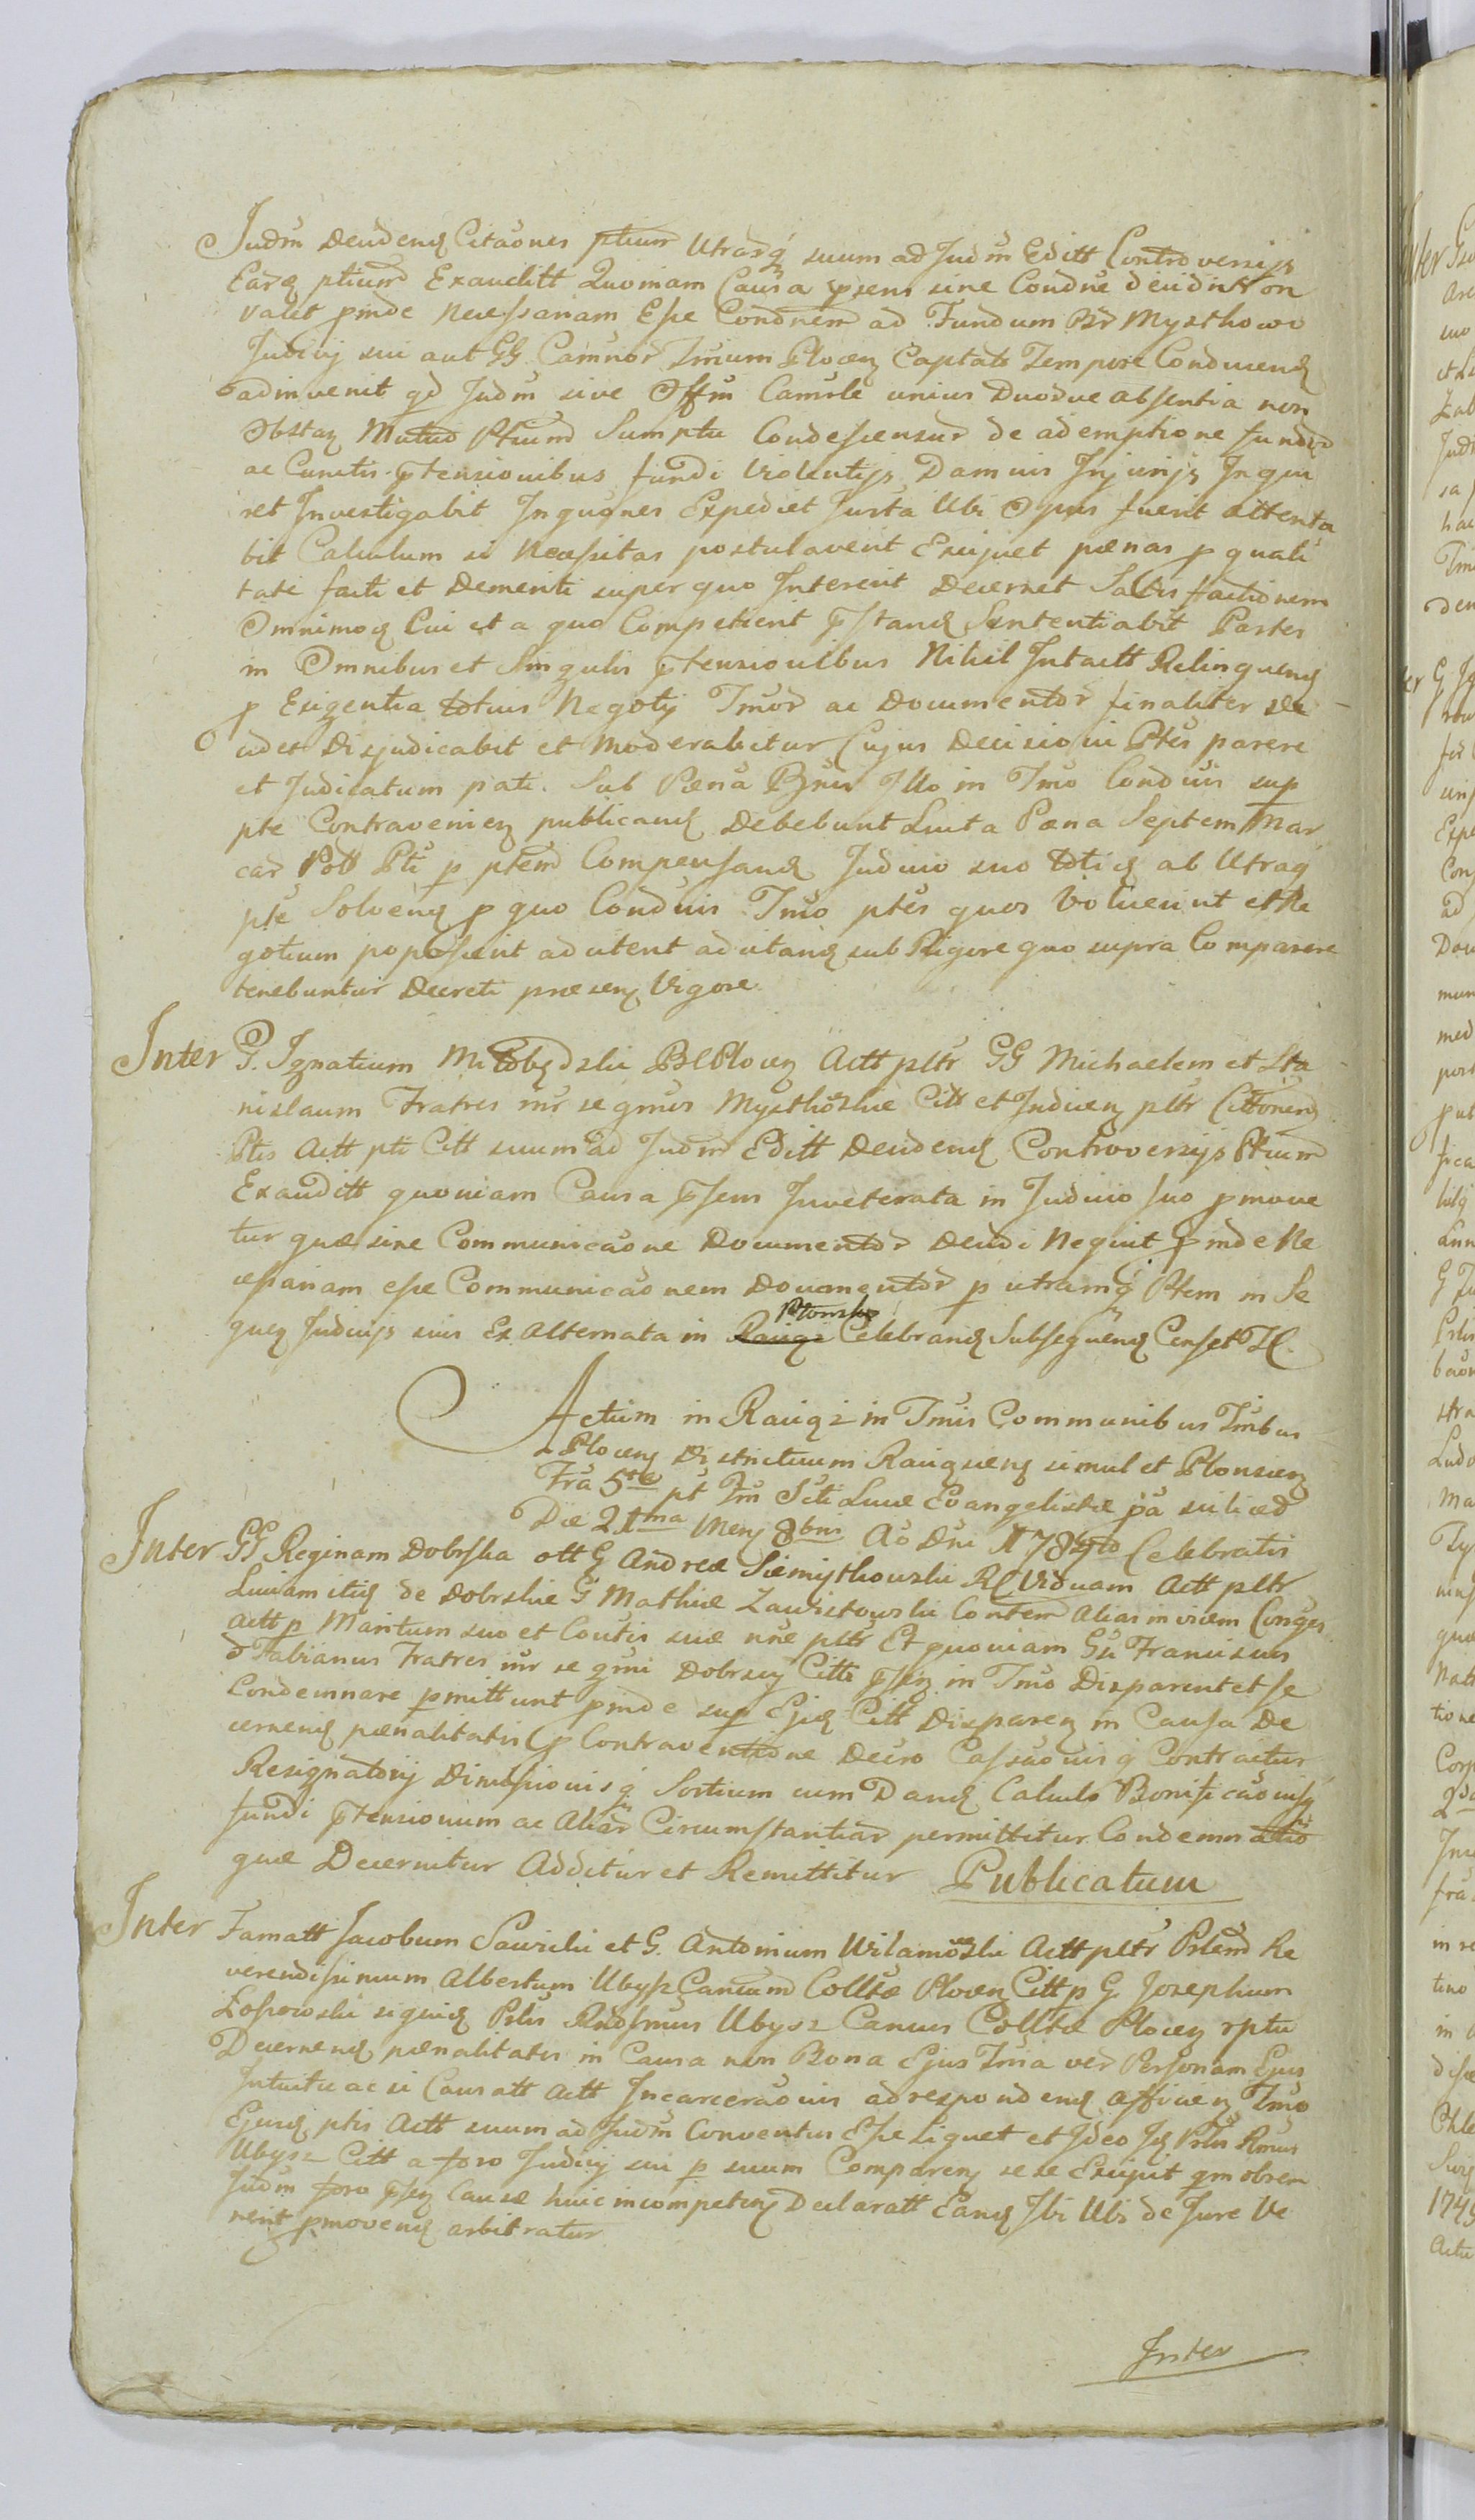 Judm Decidend Citaones ptium Utrasq suum ad Judm Editt Controversijs
Earq ptium Exauditt Quoniam Causa psens sine Condne decidi non
valet pinde Necessariam Esse Condnem ad Fundum Br Mysthowo
Judicij sui aut GG Camrior Trium Plocen Captato Tempore Conducend
adinvenit qd Judm sive Offm Camrle unius Duorve absentia non
Obstan Mutuo Ptium Sumptu Condescensur de ademptione fundor
ac Cunctis ptensionibus fundi Violentijs Damnis Injurijs Inqui
ret Investigabit Inquones Expediet Iurta Ubi Opus fuerit attenta
bit Calculum si Necessitas postulaverit Exiquet pænas p quali
tate facti et Demeriti super quo Intererit Decernet Satisfactionem
Omnimod Cui et a quo Competierit pstand Sententiabit Partes
in Omnibus et Singulis ptensionibus Nihil Intactt Relinquend
p Exigentia totius Negotij Imor ac Documentor finaliter De
cidet Disjudicabit et Moderabitur Cujus Decisioni Ptes parere
et Judicatum pati. Sub Pæna Bnis Illo in Tmo Condnis sup
pte Contravenien publicand Debebunt Luita Pæna Septem Mar
car Poll Pti p ptem Compensand Judicio suo totiq ab Utraq
pte Solvend p quo Condnis Tmo ptes quos Voluerint et Ne
gotium poposcerit adcitent adcitand sub Rigore quo supra Comparere
tenebuntur Decreti præsen Vigore.
Inter G. Ignatium Plocen Actt pltr GG Michaelem et Sta
nislaum Fratres inr se gmos Mysthoskie Citt et Indicen pltr Cittonem
Ptis Actt pti Citt suum ad Judm Editt Decidend Controversijs Ptium
Exauditt quoniam Causa psens Inveterata in Judicio suo pmove
tur quæ sine Communicaone Documentor Decidi Nequit pinde Ne
cessariam esse Communicaonem Documentor p utramq Ptem in Se
quen Judicijs suis Ex Alternata in Raciąż Płonsko Celebrand Subsequend Censet
Actum in Raciąż in Tmis Communibus Tmbus
Plocen Districtuum Raciąsien simul et Plonscen
Fra 5ta pt Fm Scti Lucæ Evangelistæ pa scilicet
Die 21ma Men 8bris Ao Dni 1784to Celebratis
Inter GG Reginam Dobrska ott G Andreæ Siemiythowski Viduam Actt pltr
Luciam itid de Dobrskie G Mathiæ Zawistowski Contem Alias in vicem Conges
actt p Maritum suo et Coutis suæ nne pltr Et quoniam Gsi Franciscus
& Fabianus Fratres inr se gmi Dobrscy Citti psen in Tmo Disparent et se
Condemnare pmittunt pinde sup Ejsd Citt Disparen in Causa De
cernend pænalitatis p Contraventione Decro Cassaonis q Contractus
Resignatorij Dimissionis q Sortium cum Dand Calculo Bonificaonisq
fundi ptensionum ac Aliar Circumstantiar permittitur Condemnatio
quæ Decernitur Additur et Remittitur Publicatum
Inter Famatt Jacobum Sawicki et G. Antonium Wilamowski Actt pltr Prlem Re
verendissimum Albertum Ubysz Canicum Colltæ Plocen Citt p G Josephum
Łossowski siquid Prlis Rndsmus Ubysz Canus Colltæ Plocen rptu
Decernend pænalitatis in Causa non Bona Ejus Tria ver Personam Ejus
Intuitu ac si Causatt Actt Incarceraonis ad respondend afficien Tmo
Ejusd ptis Actt suum ad Judm Conventus Esse Liquet et Ideo Id Prlis Rmus
Ubysz Citt a foro Judicij sui p suum Comparen se se Excipit qm obren
Judm foro psen Causæ huic incompeten Declaratt Eand Ibi Ubi de Jure Ve
nerit pmovend arbitratur
Inter